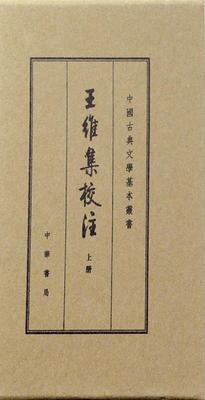 中國古典文學基本叢書
王維集校注
上册
中華書局